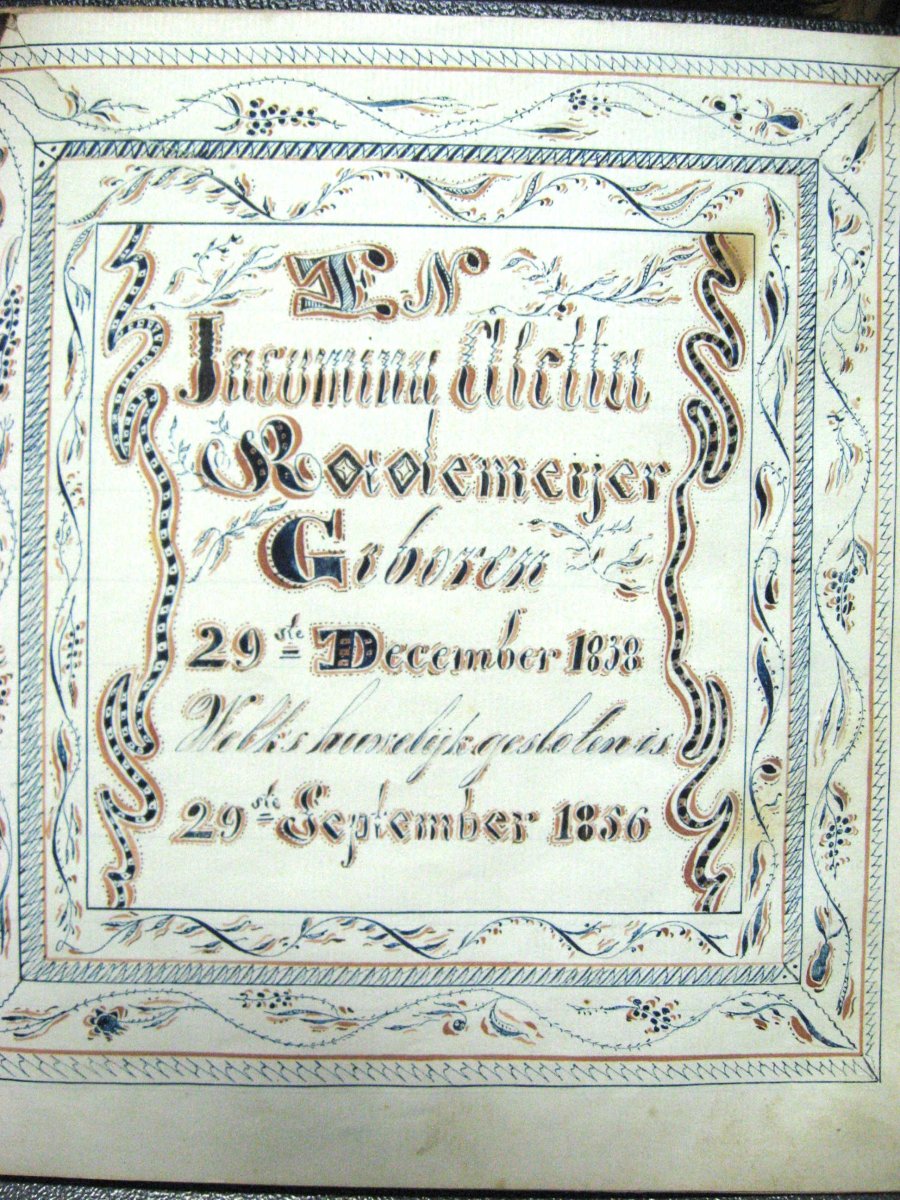 EN
Jacomina Aletta
Rademeyer
Geboren
29ste December 1838
Welks huwelijk gesloten is
29ste September 1856